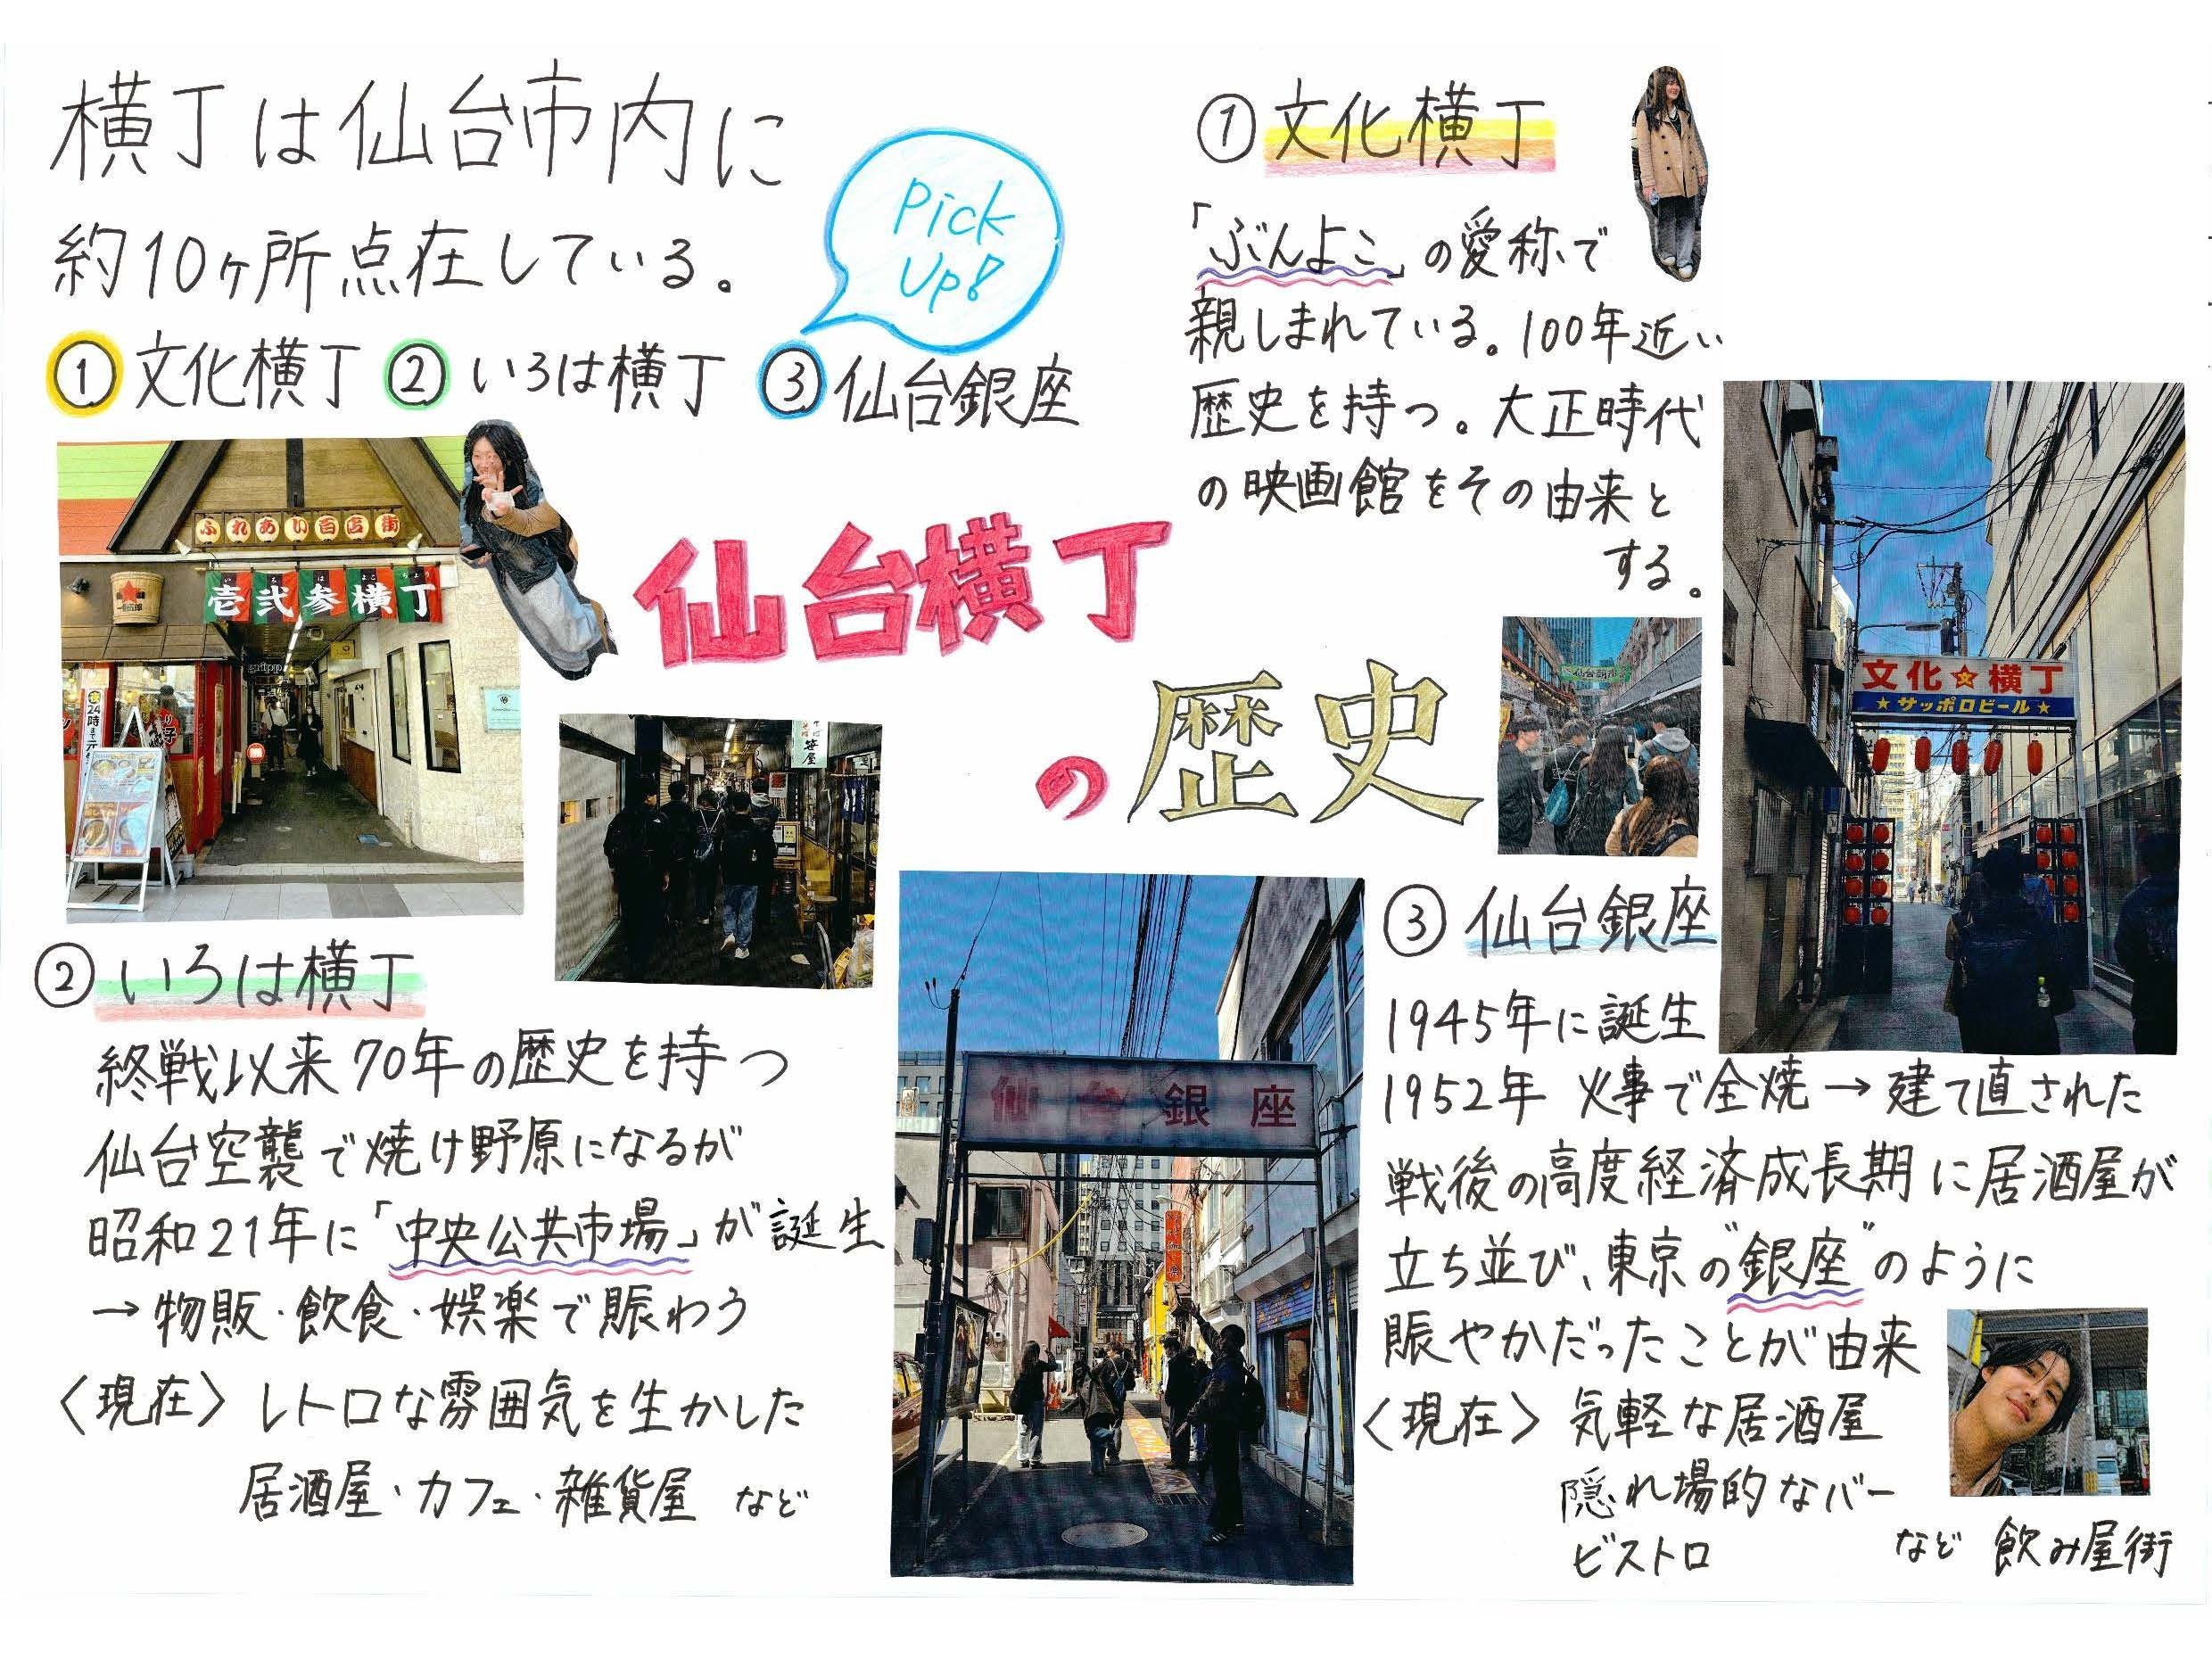 横丁は仙台市内に
約10ヶ所点在している。
Pick
Up!
① 文化横丁 ② いろは横丁 ③ 仙台銀座
仙台横丁
の歴史
① 文化横丁
「ぶんよこ」の愛称で
親しまれている。100年近い
歴史を持つ。大正時代
の映画館をその由来と
する。
文化☆横丁
★サッポロビール★
ふれあい百店街
いろはよこちょう
壱弐参横丁
24時
笹屋
② いろは横丁
終戦以来70年の歴史を持つ
仙台空襲で焼け野原になるが
昭和21年に「中央公共市場」が誕生
→物販・飲食・娯楽で賑わう
〈現在〉レトロな雰囲気を生かした
居酒屋・カフェ・雑貨屋 など
仙台銀座
③ 仙台銀座
1945年に誕生
1952年 火事で全焼→建て直された
戦後の高度経済成長期に居酒屋が
立ち並び、東京の"銀座"のように
賑やかだったことが由来
〈現在〉気軽な居酒屋
隠れ場的なバー
ビストロ など 飲み屋街